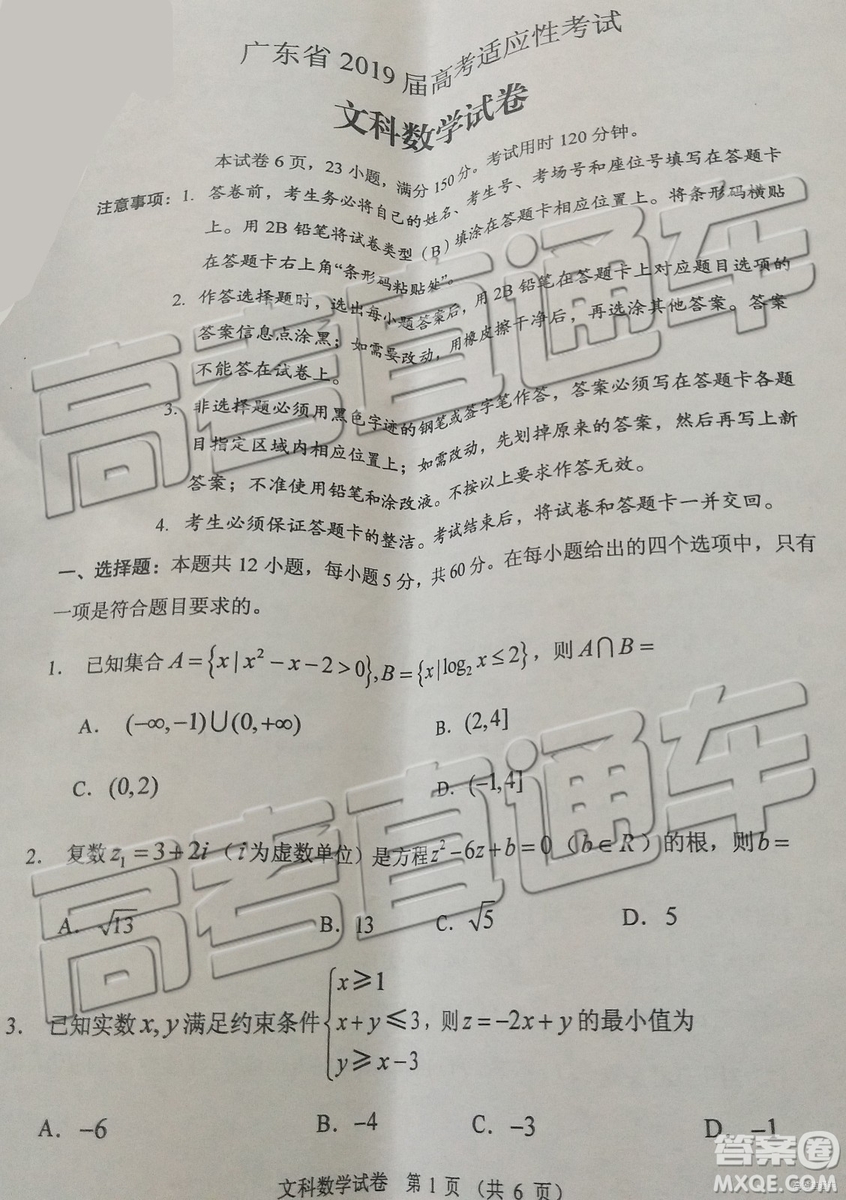 广东省 2019 届高考适应性考试
文科数学试卷
本试卷 6 页，23 小题，满分 150 分。考试用时 120 分钟。
注意事项：1. 答卷前，考生务必将自己的姓名、考生号、考场号和座位号填写在答题卡
上。用 2B 铅笔将试卷类型（B）填涂在答题卡相应位置上。将条形码横贴
在答题卡右上角“条形码粘贴处”。
2. 作答选择题时，选出每小题答案后，用 2B 铅笔在答题卡上对应题目选项的
答案信息点涂黑；如需要改动，用橡皮擦干净后，再选涂其他答案。答案
不能答在试卷上。
3. 非选择题必须用黑色字迹的钢笔或签字笔作答，答案必须写在答题卡各题
目指定区域内相应位置上；如需改动，先划掉原来的答案，然后再写上新
答案；不准使用铅笔和涂改液。不按以上要求作答无效。
4. 考生必须保证答题卡的整洁。考试结束后，将试卷和答题卡一并交回。
一、选择题：本题共 12 小题，每小题 5 分，共 60 分。在每小题给出的四个选项中，只有
一项是符合题目要求的。
1. 已知集合 A={x|x²-x-2>0},B={x|log₂x≤2}，则 A∩B=
A. (-∞,-1)∪(0,+∞) B. (2,4]
C. (0,2) D. (-1,4]
2. 复数 z₁=3+2i（i 为虚数单位）是方程 z²-6z+b=0（b∈R）的根，则 b=
A. √13 B. 13 C. √5 D. 5
3. 已知实数 x,y 满足约束条件 {x≥1
x+y≤3，则 z=-2x+y 的最小值为
y≥x-3
A. -6 B. -4 C. -3 D. -1
文科数学试卷 第 1 页 （共 6 页）
高考直通车
高考直通车
答案圈
MXQE.COM